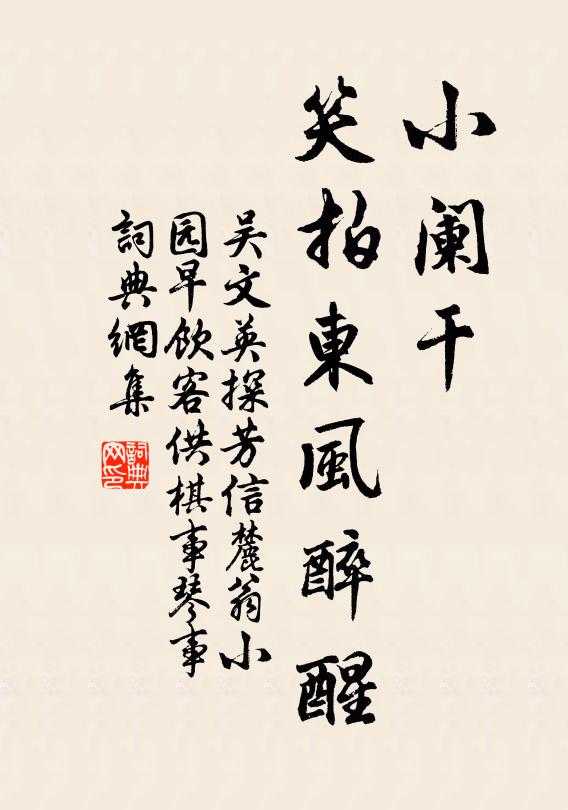 小阑干
笑拍東風醉醒
吴文英探芳信麓翁小
园早飲客供棋事琴事
詞典網集
詞典网印